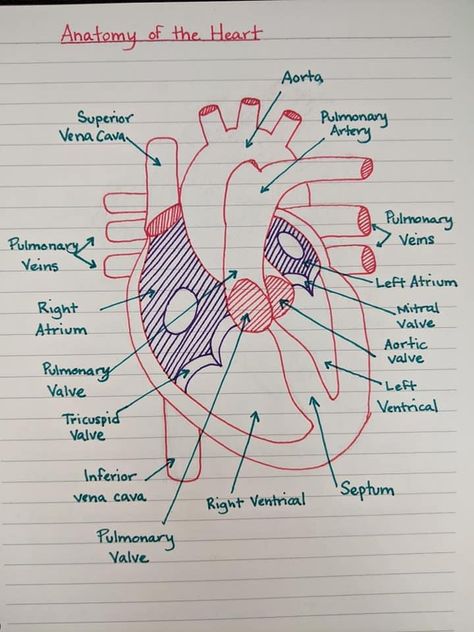 Anatomy of the Heart
Aorta
Superior
Vena Cava
Pulmonary
Artery
Pulmonary
Veins
Pulmonary
Veins
Left Atrium
Right
Atrium
Mitral
Valve
Aortic
valve
Pulmonary
Valve
Left
Ventrical
Tricuspid
Valve
Inferior
vena cava
Right Ventrical
Septum
Pulmonary
Valve